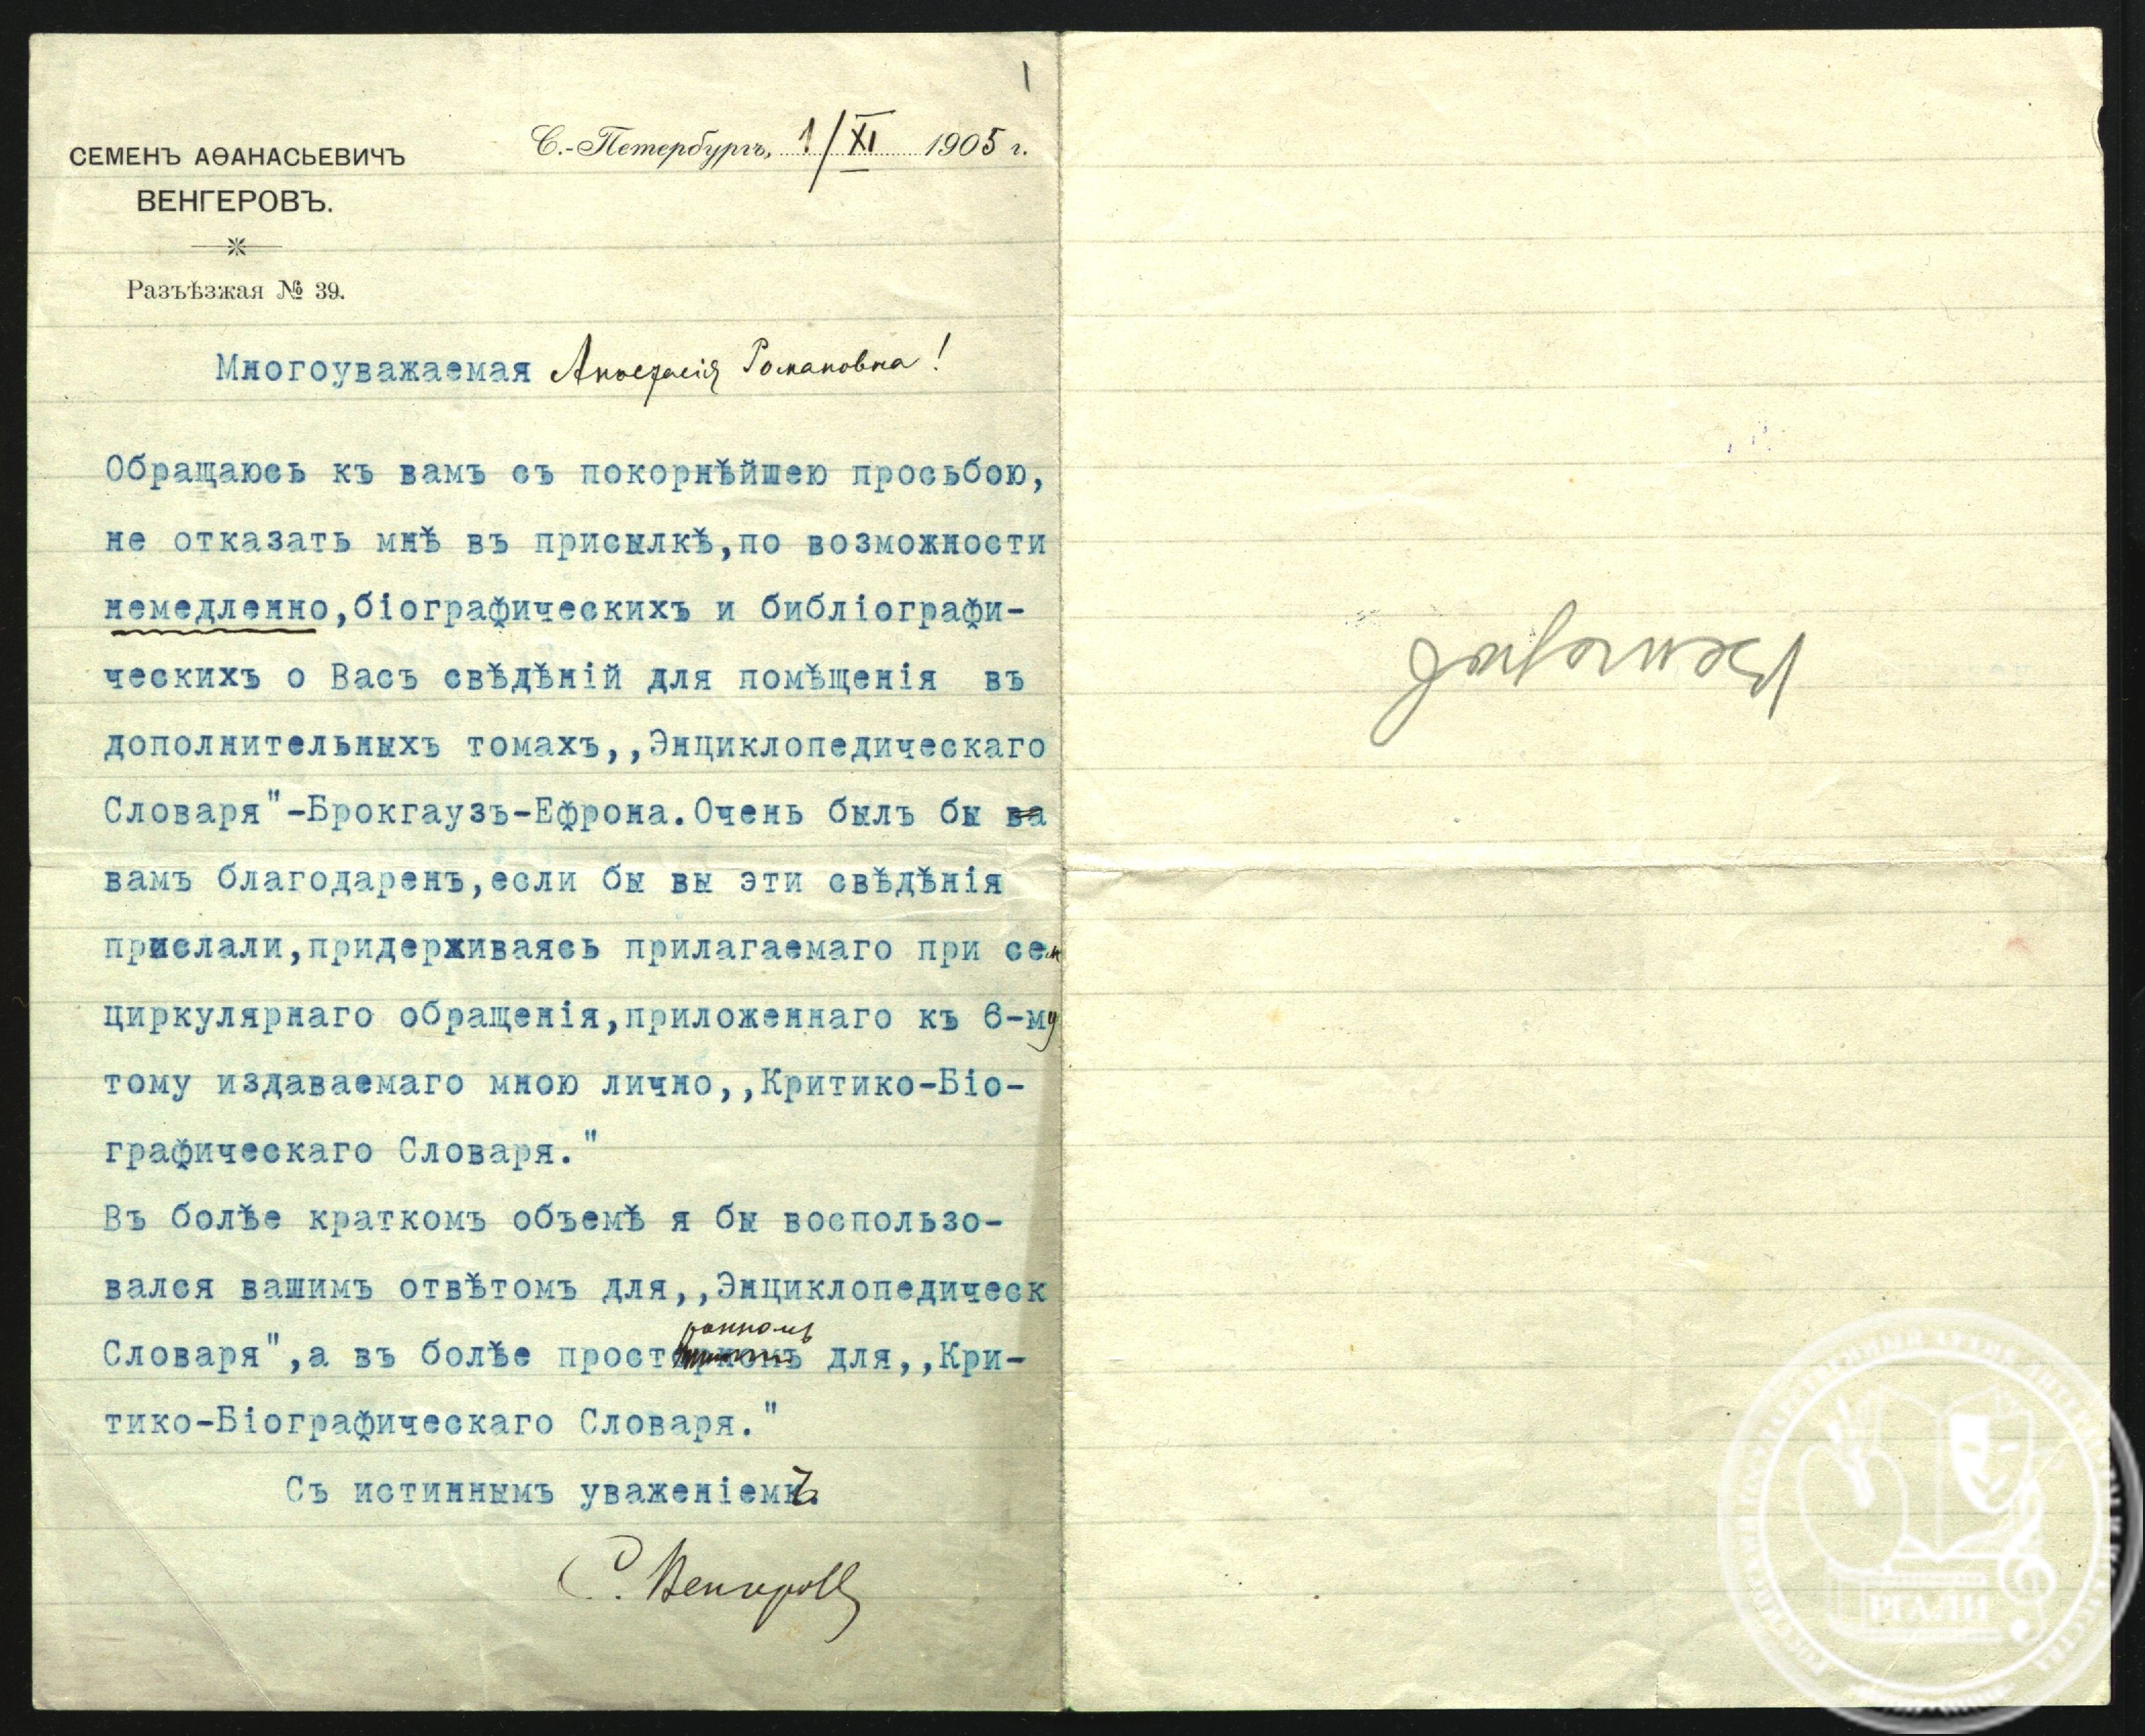 1
СЕМЕНЪ АѲАНАСЬЕВИЧЪ
ВЕНГЕРОВЪ.
Разъѣзжая № 39.
С.-Петербургъ, 1/XI 1905 г.
Многоуважаемая Анастасія Романовна!
Обращаюсь къ вамъ съ покорнѣйшею просьбою,
не отказать мнѣ въ присылкѣ,по возможности
немедленно,біографическихъ и библіографи-
ческихъ о Васъ свѣдѣній для помѣщенія въ
дополнительныхъ томахъ,,Энциклопедическаго
Словаря"-Брокгаузъ-Ефрона.Очень былъ бы ва
вамъ благодаренъ,если бы вы эти свѣдѣнія
прислали,придерживаясь прилагаемаго при сем
циркулярнаго обращенія,приложеннаго къ 6-му
тому издаваемаго мною лично,,Критико-Біо-
графическаго Словаря."
Въ болѣе краткомъ объемѣ я бы воспользо-
вался вашимъ отвѣтомъ для,,Энциклопедическ
Словаря",а въ болѣе пространномъ для,,Кри-
тико-Біографическаго Словаря."
Съ истиннымъ уваженіемъ.
С. Венгеровъ
Венгеров
РГАЛИ